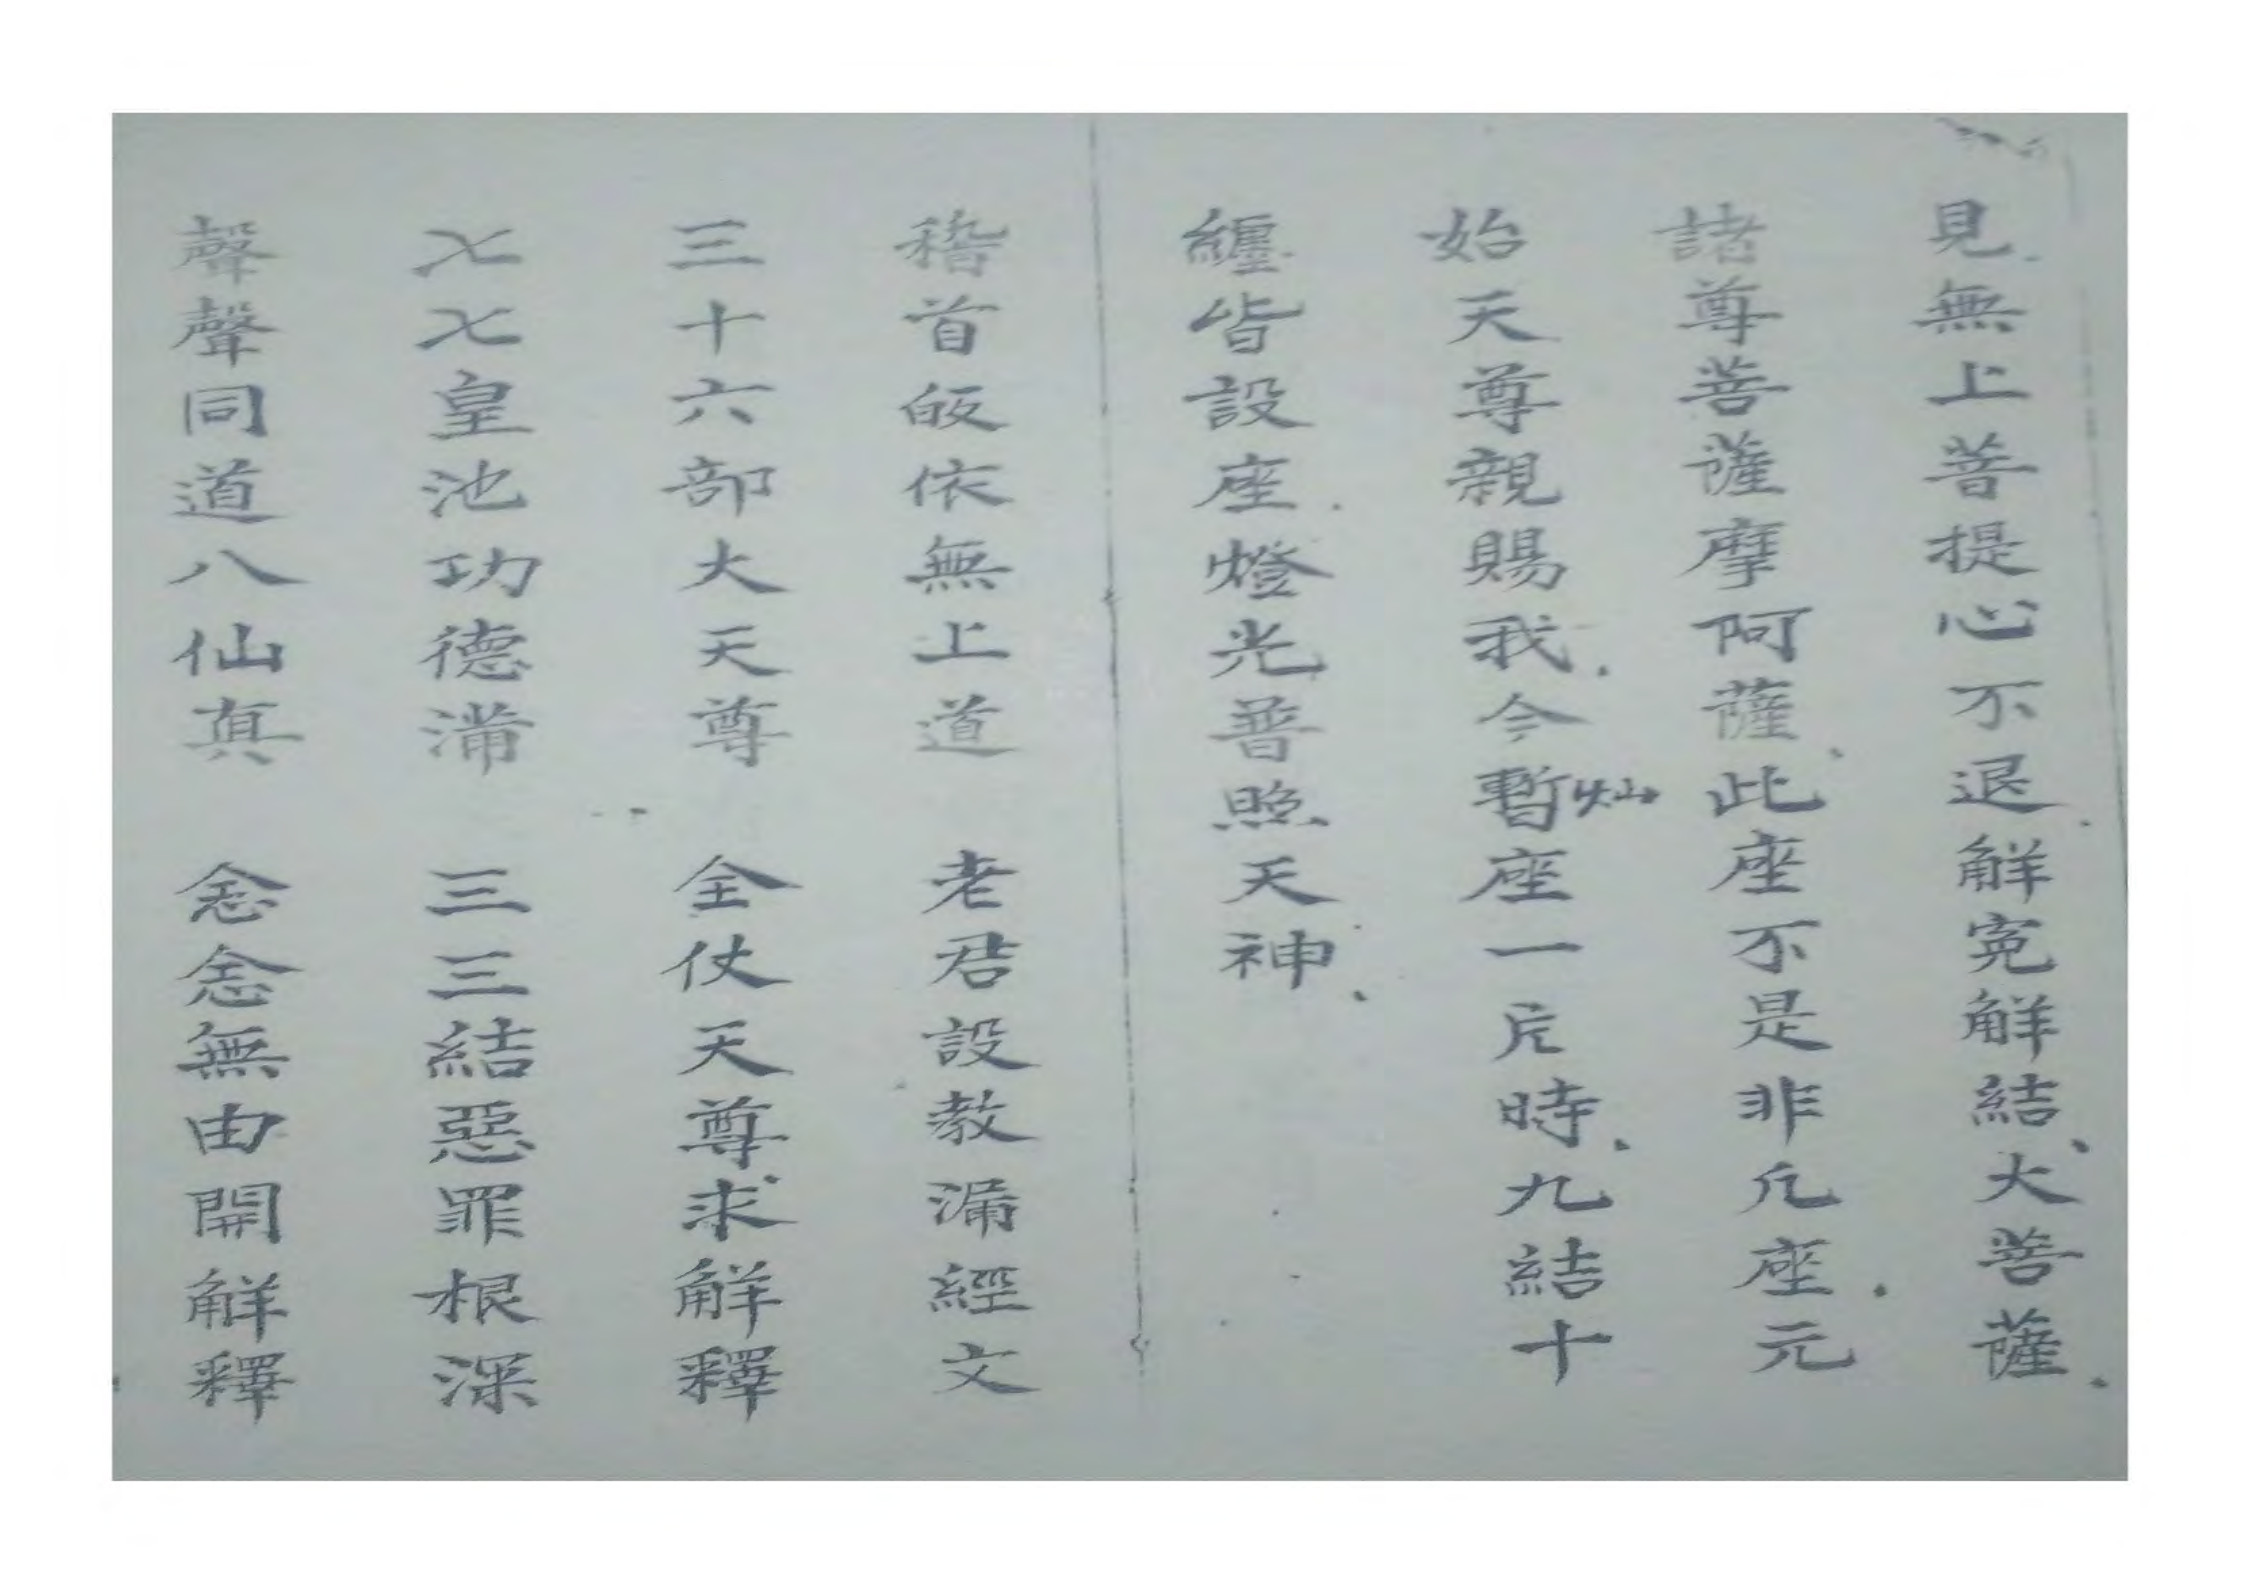 見無上菩提心不退解寃解結大菩薩
諸尊菩薩摩阿薩此座不是非凡座元
始天尊親賜我今暫灿座一片時九結十
纏皆設座燈光普照天神
稽首皈依無上道 老君設教漏經文
三十六部大天尊 全仗天尊求解釋
七七皇池功德滿 三三結惡罪根深
聲聲同道八仙真 念念無由開解釋